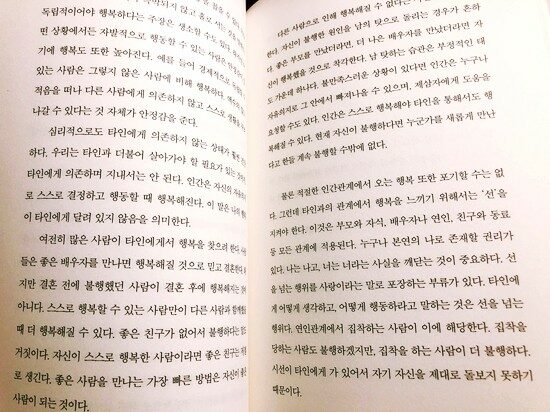 독립적이어야 행복하다는 주장은 생소할 수도 있다.
떤 상황에서는 자발적으로 행동할 수 있는 사람은 안정
기에 행복도 또한 높아진다. 예를 들어 경제적으로
있는 사람은 그렇지 않은 사람에 비해 행복하다.
적음을 떠나 다른 사람에게 의존하지 않고 스스로
나갈 수 있다는 것 자체가 안정감을 준다.
심리적으로도 타인에게 의존하지 않는 상태가
하다. 우리는 타인과 더불어 살아가야 할 필요가 있는
타인에게 의존하며 지내서는 안 된다. 인간은 자신의
로 스스로 결정하고 행동할 때 행복해진다. 이 말은 나의
이 타인에게 달려 있지 않음을 의미한다.
여전히 많은 사람이 타인에게서 행복을 찾으려 한다.
들은 좋은 배우자를 만나면 행복해질 것으로 믿고 결혼한다.
지만 결혼 전에 불행했던 사람이 결혼 후에 행복해지는
아니다. 스스로 행복할 수 있는 사람만이 다른 사람과 함께할
때 더 행복해질 수 있다. 좋은 친구가 없어서 불행하다는
거짓이다. 자신이 스스로 행복한 사람이라면 좋은 친구는
로 생긴다. 좋은 사람을 만나는 가장 빠른 방법은 자신이 좋은
사람이 되는 것이다.
다른 사람으로 인해 행복해질 수 없다는
다. 자신이 불행한 원인을 남의 탓으로 돌리는 경우가 흔하
다. 좋은 부모를 만났더라면, 더 나은 배우자를 만났더라면 자
신이 행복했을 것으로 착각한다. 남 탓하는 습관은 부정적인 태
도 가운데 하나다. 불만족스러운 상황이 있다면 인간은 누구나
자유의지로 그 안에서 빠져나올 수 있으며, 제삼자에게 도움을
요청할 수도 있다. 인간은 스스로 행복해야 타인을 통해서도 행
복해질 수 있다. 현재 자신이 불행하다면 누군가를 새롭게 만난
다고 한들 계속 불행할 수밖에 없다.
물론 적절한 인간관계에서 오는 행복 또한 포기할 수는 없
다. 그런데 타인과의 관계에서 행복을 느끼기 위해서는 ‘선’을
지켜야 한다. 이것은 부모와 자식, 배우자나 연인, 친구와 동료
등 모든 관계에 적용된다. 누구나 본연의 나로 존재할 권리가
있다. 나는 나고, 너는 너라는 사실을 깨닫는 것이 중요하다. 선
을 넘는 행위를 사랑이라는 말로 포장하는 부류가 있다. 타인에
게 어떻게 생각하고, 어떻게 행동하라고 말하는 것은 선을 넘는
행위다. 연인관계에서 집착하는 사람이 이에 해당한다. 집착을
당하는 사람도 불행하겠지만, 집착을 하는 사람이 더 불행하다.
시선이 타인에게 가 있어서 자기 자신을 제대로 돌보지 못하기
때문이다.